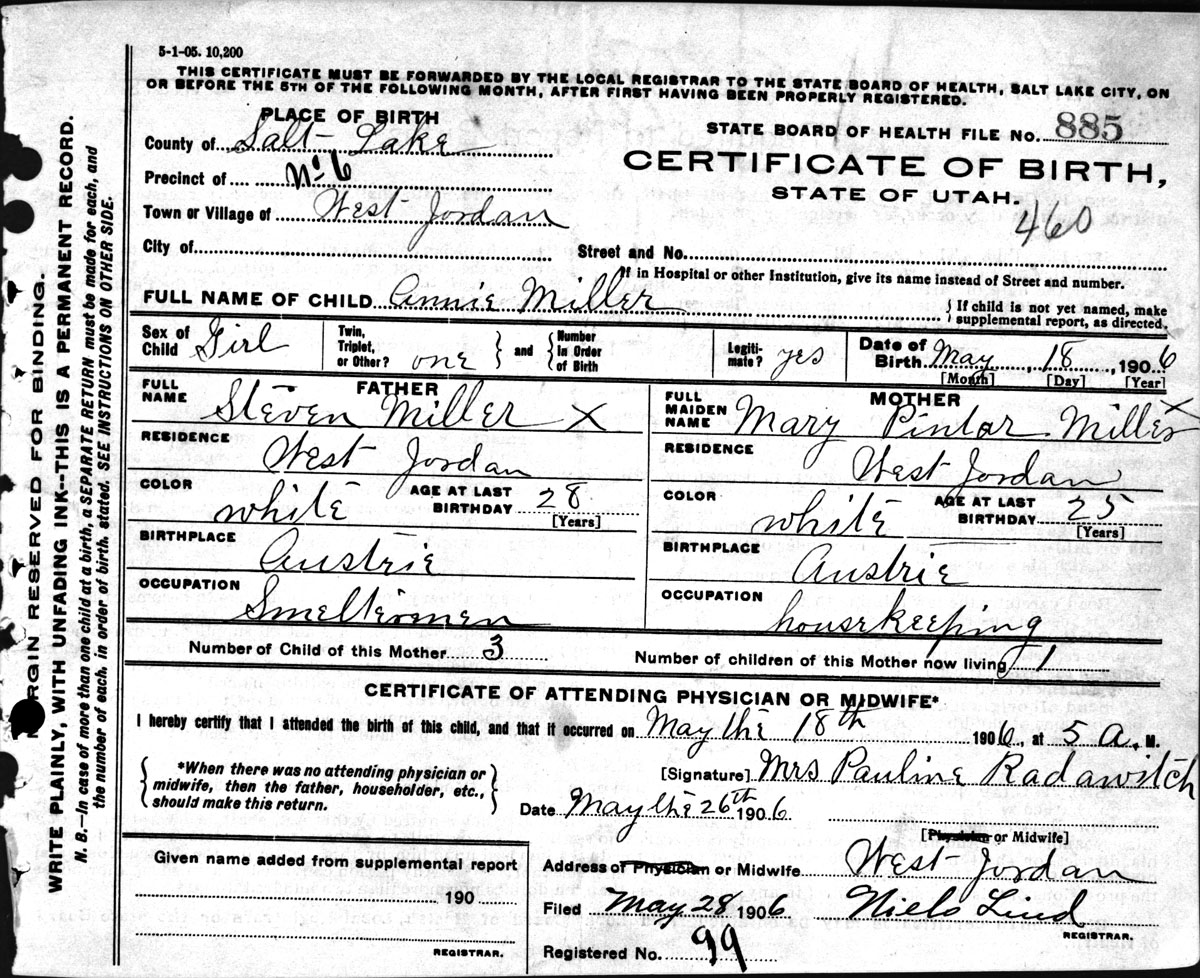 5-1-05. 10,200
THIS CERTIFICATE MUST BE FORWARDED BY THE LOCAL REGISTRAR TO THE STATE BOARD OF HEALTH, SALT LAKE CITY, ON
OR BEFORE THE 5TH OF THE FOLLOWING MONTH, AFTER FIRST HAVING BEEN PROPERLY REGISTERED.
PLACE OF BIRTH
STATE BOARD OF HEALTH FILE No. 885
County of Salt Lake
CERTIFICATE OF BIRTH,
Precinct of No 6
STATE OF UTAH.
Town or Village of West Jordan
460
City of
Street and No.
If in Hospital or other Institution, give its name instead of Street and number.
FULL NAME OF CHILD Annie Miller
{If child is not yet named, make
supplemental report, as directed.
Sex of Child Girl
Twin, Triplet, or Other? one } and { Number in Order of Birth
Legiti-mate? yes
Date of Birth May, 18, 1906
[Month] [Day] [Year]
FATHER
FULL NAME Steven Miller X
MOTHER
FULL MAIDEN NAME Mary Pintar Miller X
RESIDENCE West Jordan
RESIDENCE West Jordan
COLOR white AGE AT LAST BIRTHDAY 28 [Years]
COLOR white AGE AT LAST BIRTHDAY 25 [Years]
BIRTHPLACE Austrie
BIRTHPLACE Austrie
OCCUPATION Smeltermen
OCCUPATION housekeeping
Number of Child of this Mother 3
Number of children of this Mother now living 1
CERTIFICATE OF ATTENDING PHYSICIAN OR MIDWIFE*
I hereby certify that I attended the birth of this child, and that it occurred on May the 18th 1906, at 5 A. M.
{ *When there was no attending physician or
midwife, then the father, householder, etc.,
should make this return. }
[Signature] Mrs Pauline Radawitch
Date May the 26th 1906
[Physician or Midwife]
Given name added from supplemental report
190
REGISTRAR.
Address of Physician or Midwife West Jordan
Filed May 28 1906 Niels Lind
REGISTRAR.
Registered No. 99
MARGIN RESERVED FOR BINDING.
WRITE PLAINLY, WITH UNFADING INK--THIS IS A PERMANENT RECORD.
N. B.—In case of more than one child at a birth, a SEPARATE RETURN must be made for each, and
the number of each, in order of birth, stated. SEE INSTRUCTIONS ON OTHER SIDE.